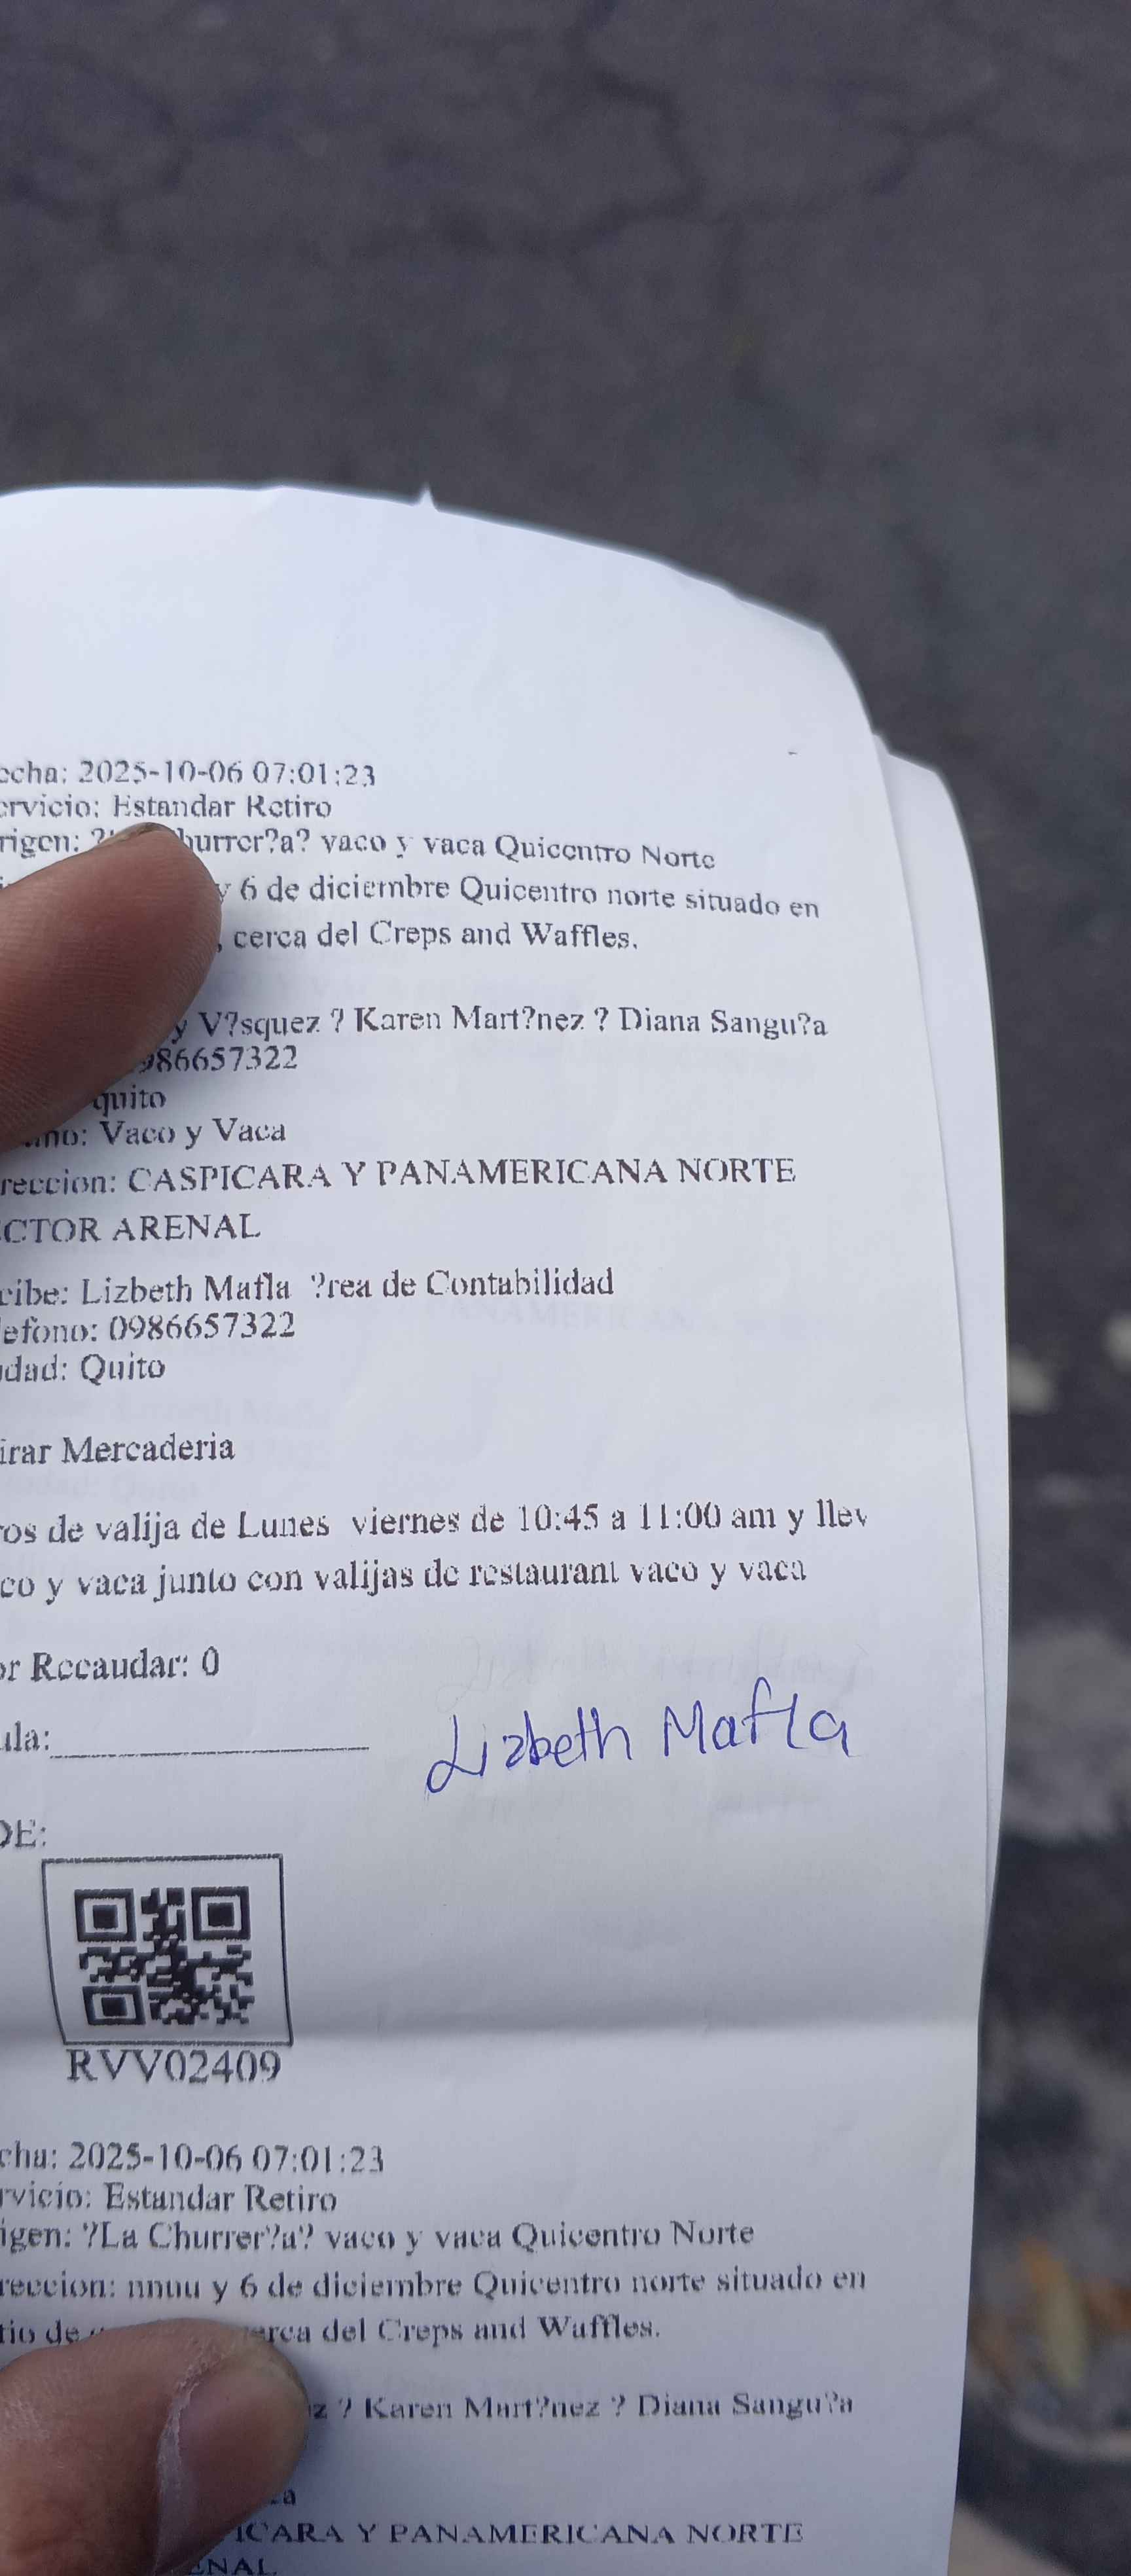 echa: 2025-10-06 07:01:23
ervicio: Estandar Retiro
rigen: hurrer?a? vaco y vaca Quicentro Norte
y 6 de diciembre Quicentro norte situado en
, cerca del Creps and Waffles.
y V?squez ? Karen Mart?nez ? Diana Sangu?a
986657322
quito
ino: Vaco y Vaca
reccion: CASPICARA Y PANAMERICANA NORTE
CTOR ARENAL
cibe: Lizbeth Mafla ?rea de Contabilidad
lefono: 0986657322
dad: Quito
irar Mercaderia
ros de valija de Lunes viernes de 10:45 a 11:00 am y llev
co y vaca junto con valijas de restaurant vaco y vaca
or Recaudar: 0
ula:
Lizbeth Mafla
DE:
RVV02409
cha: 2025-10-06 07:01:23
rvicio: Estandar Retiro
igen: ?La Churrer?a? vaco y vaca Quicentro Norte
reccion: nnuu y 6 de diciembre Quicentro norte situado en
tio de erca del Creps and Waffles.
z ? Karen Mart?nez ? Diana Sangu?a
ca
ICARA Y PANAMERICANA NORTE
ENAL